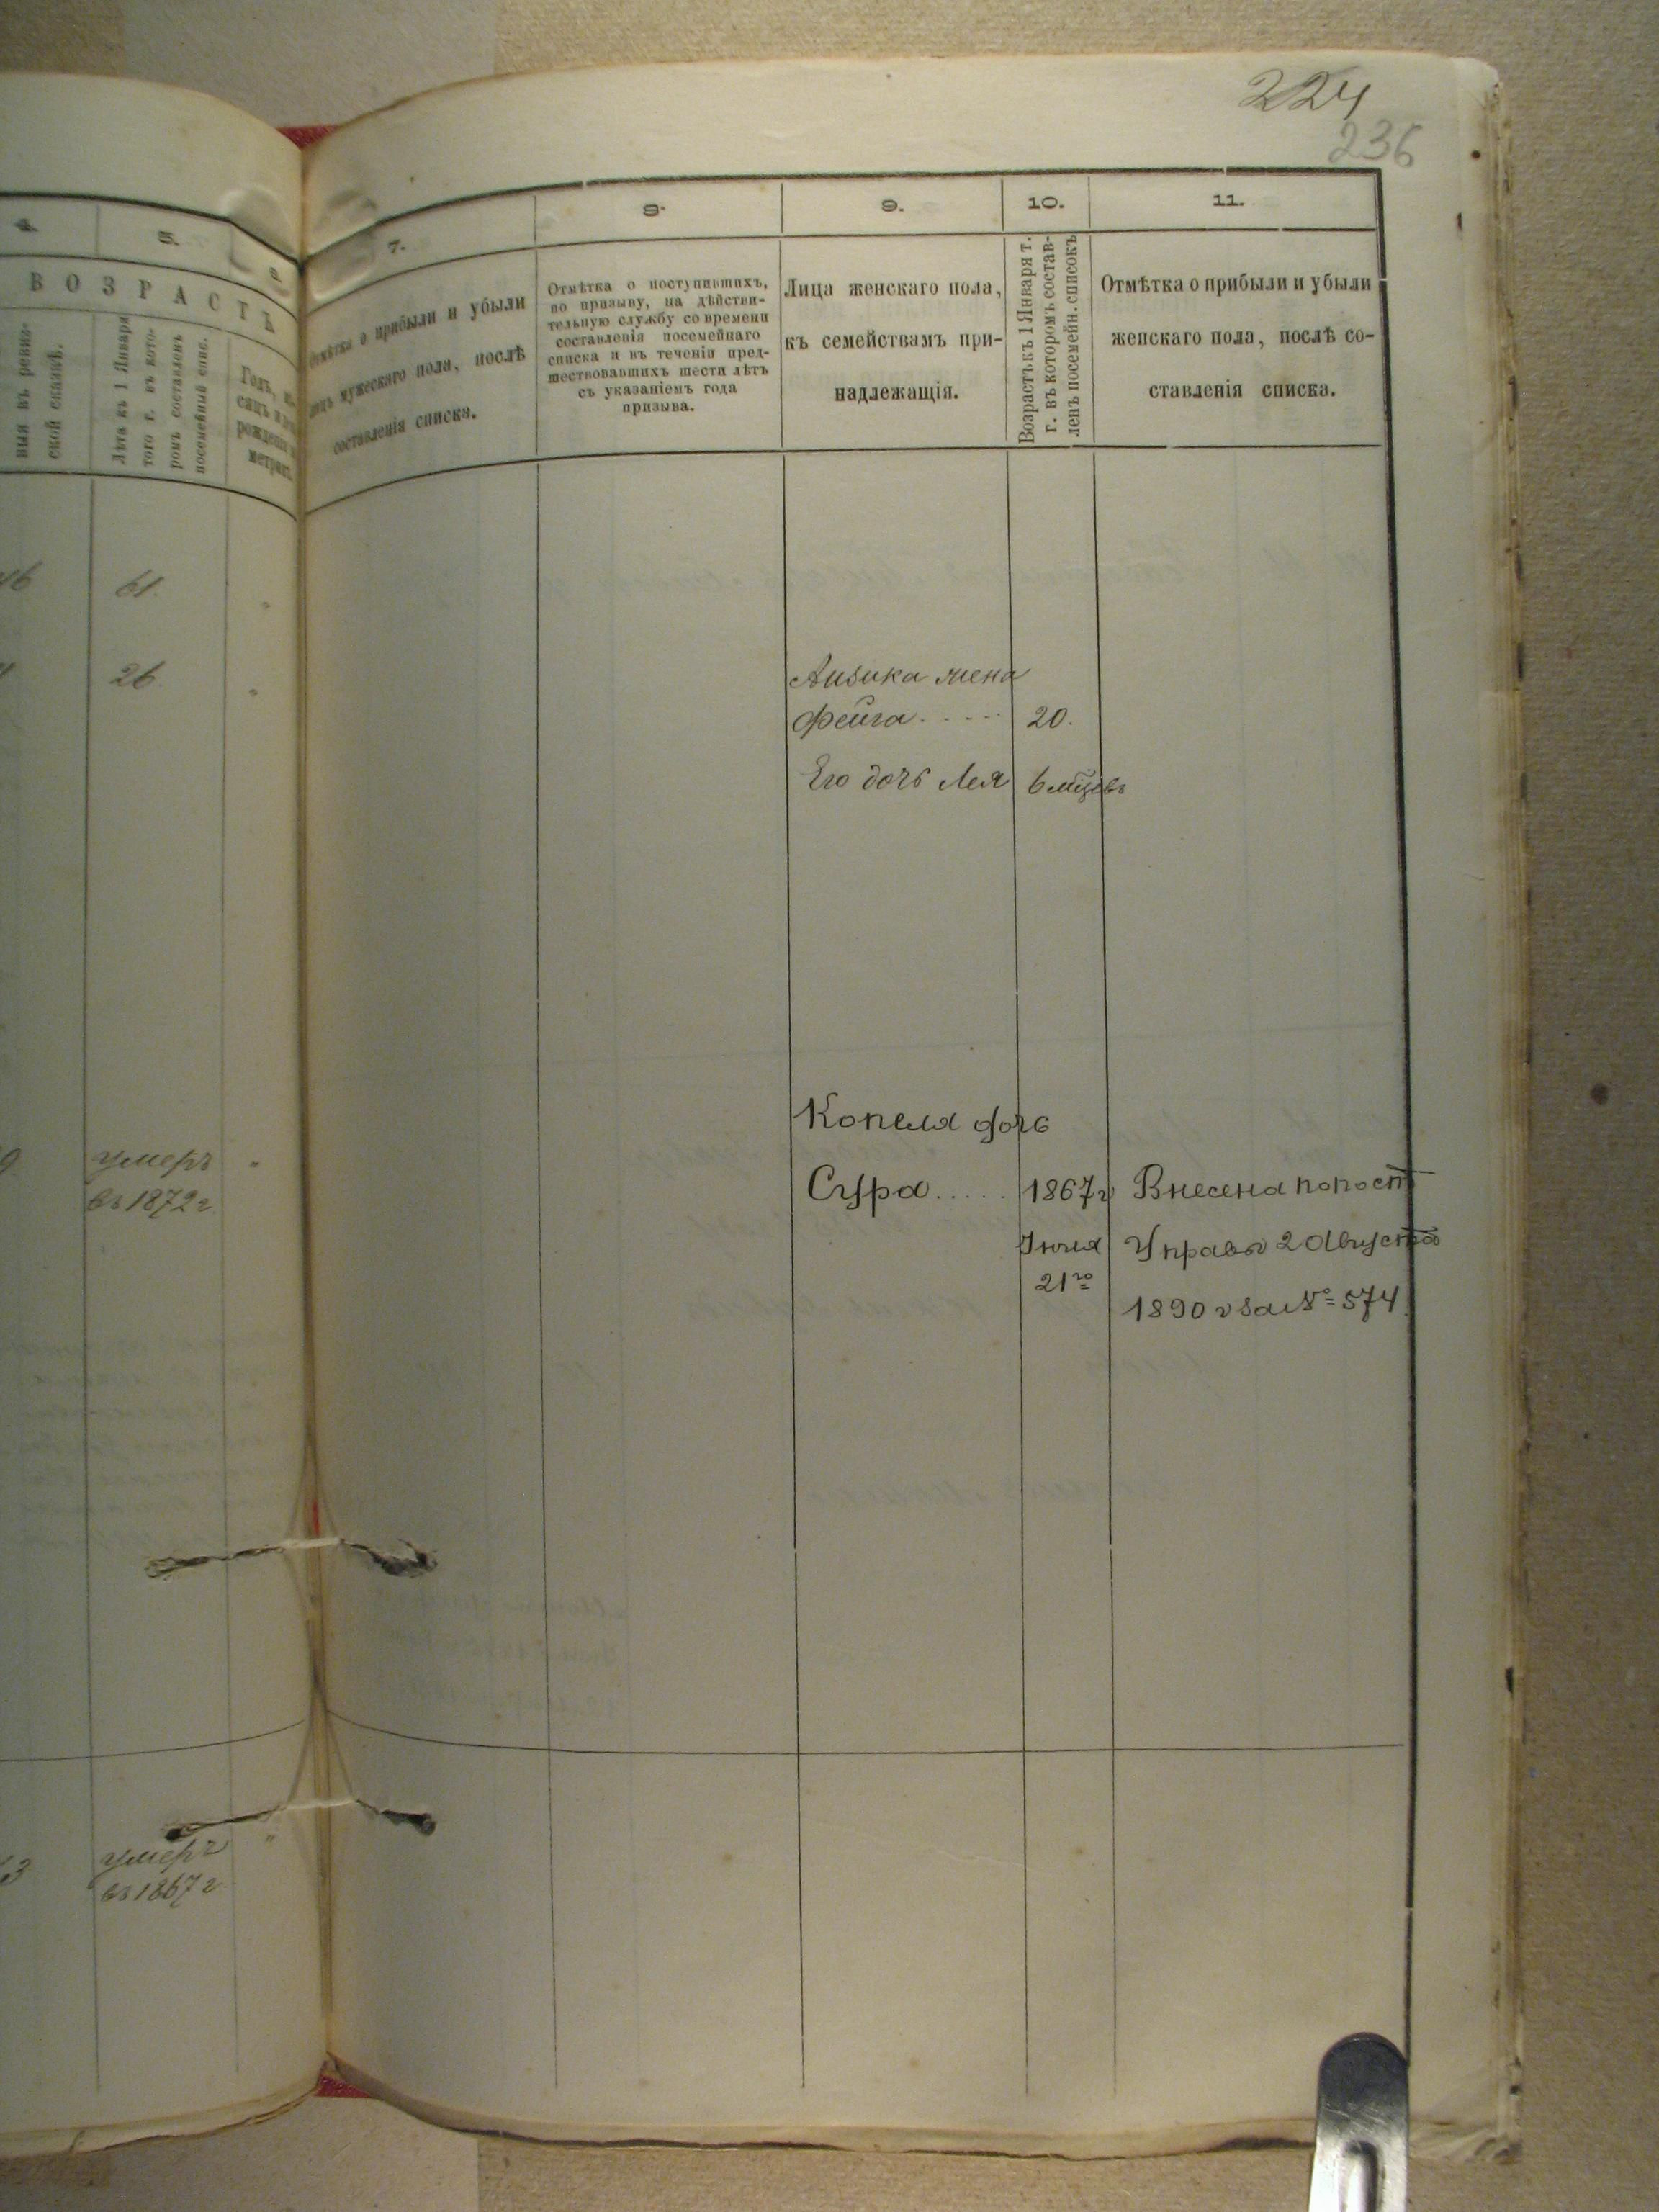 224
236
4.
5.
6
ВОЗРАСТЪ
ныя въ ревиз-
ской сказкѣ.
Лѣта къ 1 Января
того г. въ кото-
ромъ составленъ
посемейный спис.
Годъ, мѣ-
сяцъ и
рожденія
метрик.
46
61.
"
26
"
умеръ
въ 1872 г
"
3
умеръ
въ 1867 г.
"
7.
Отмѣтка о прибыли и убыли
лицъ мужескаго пола, послѣ
составленія списка.
8.
Отмѣтка о поступившихъ,
по призыву, на дѣйстви-
тельную службу со времени
составленія посемейнаго
списка и въ теченіи пред-
шествовавшихъ шести лѣтъ
съ указаніемъ года
призыва.
9.
Лица женскаго пола,
къ семействамъ при-
надлежащія.
10.
Возрастъ къ 1 Января т.
г. въ которомъ состав-
ленъ посемейн. списокъ
11.
Отмѣтка о прибыли и убыли
женскаго пола, послѣ со-
ставленія списка.
Айзика жена
Фейга..... 20.
Его дочь Лея 6 мцевъ
Копеля дочь
Сура..... 1867 г Внесена по пост
Іюля Управы 2 Августа
21го
1890 г за № 574.